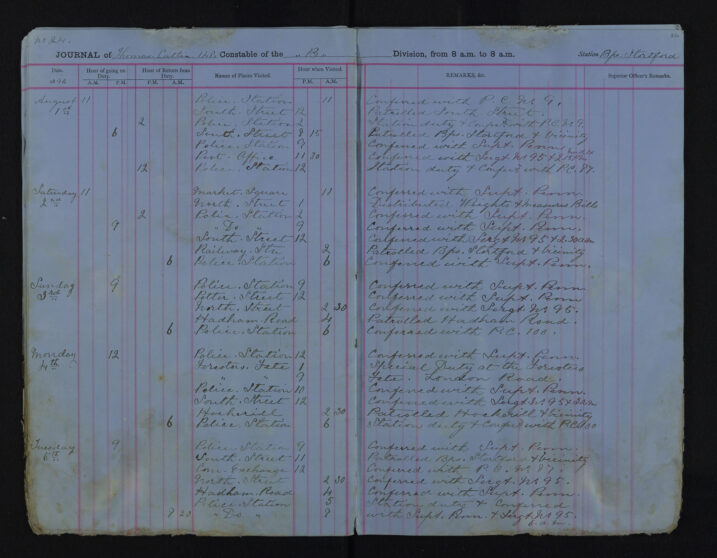 JOURNAL of Thomas Constable of the "B" Division, from 8 a.m. to 8 a.m. Station Bps. Stortford
Date. Hour of going on Duty. Hour of Return from Duty. Names of Places Visited. Hour when Visited. REMARKS, &c. Superior Officer's Remarks.
A.M. P.M. P.M. A.M. P.M. A.M.
August 11 Police Station 11 Conferred with P.C. No 9.
1st South Street 12 Patrolled South Street
2 Police Station 2 Station duty & Conf with P.C. No 9.
6 South Street 8 15 Patrolled Bps. Stortford & Vicinity
Police Station 9 Conferred with Supt. Penn
Post Office 11 30 Conferred with Sergt No 95 &
12 Police Station 12 Station duty & Confer with P.C. 87.
Saturday 11 Market Square 11 Conferred with Supt. Penn.
2nd North Street 1 Distributed Weights & Measures Bills
2 Police Station 2 Conferred with Supt. Penn.
9 " Do " 9 Conferred with Supt. Penn.
South Street 12 Conferred with Sergt No 95 & 2.30 am
Railway Stn 2 Patrolled Bps. Stortford & Vicinity
6 Police Station 6 Conferred with Supt. Penn.
Sunday 9 Police Station 9 Conferred with Supt. Penn
3rd Potter Street 12 Conferred with Supt. Penn
North Street 2 30 Conferred with Sergt. No 95.
Hadham Road 4 Patrolled Hadham Road.
6 Police Station 6 Conferred with P.C. 100.
Monday 12 Police Station 12 Conferred with Supt. Penn
4th Foresters Fete 1 Special Duty at the Foresters
" " 9 Fete. London Road.
Police Station 10 Conferred with Supt. Penn.
South Street 12 Conferred with Sergt No 95 &
Hockerill 2 30 Patrolled Hockerill & Vicinity
6 Police Station 6 Station duty & Confer with P.C. 100
Tuesday 9 Police Station 9 Conferred with Supt. Penn.
5th South Street 11 Patrolled Bps. Stortford & Vicinity
Corn Exchange 12 Conferred with P.C. No 87.
North Street 2 30 Conferred with Sergt. No 95.
Hadham Road 4 Conferred with Supt. Penn
Police Station 5 Station duty & Conferred
8 20 " Do " 8 with Supt. Penn. & Sergt No 95.